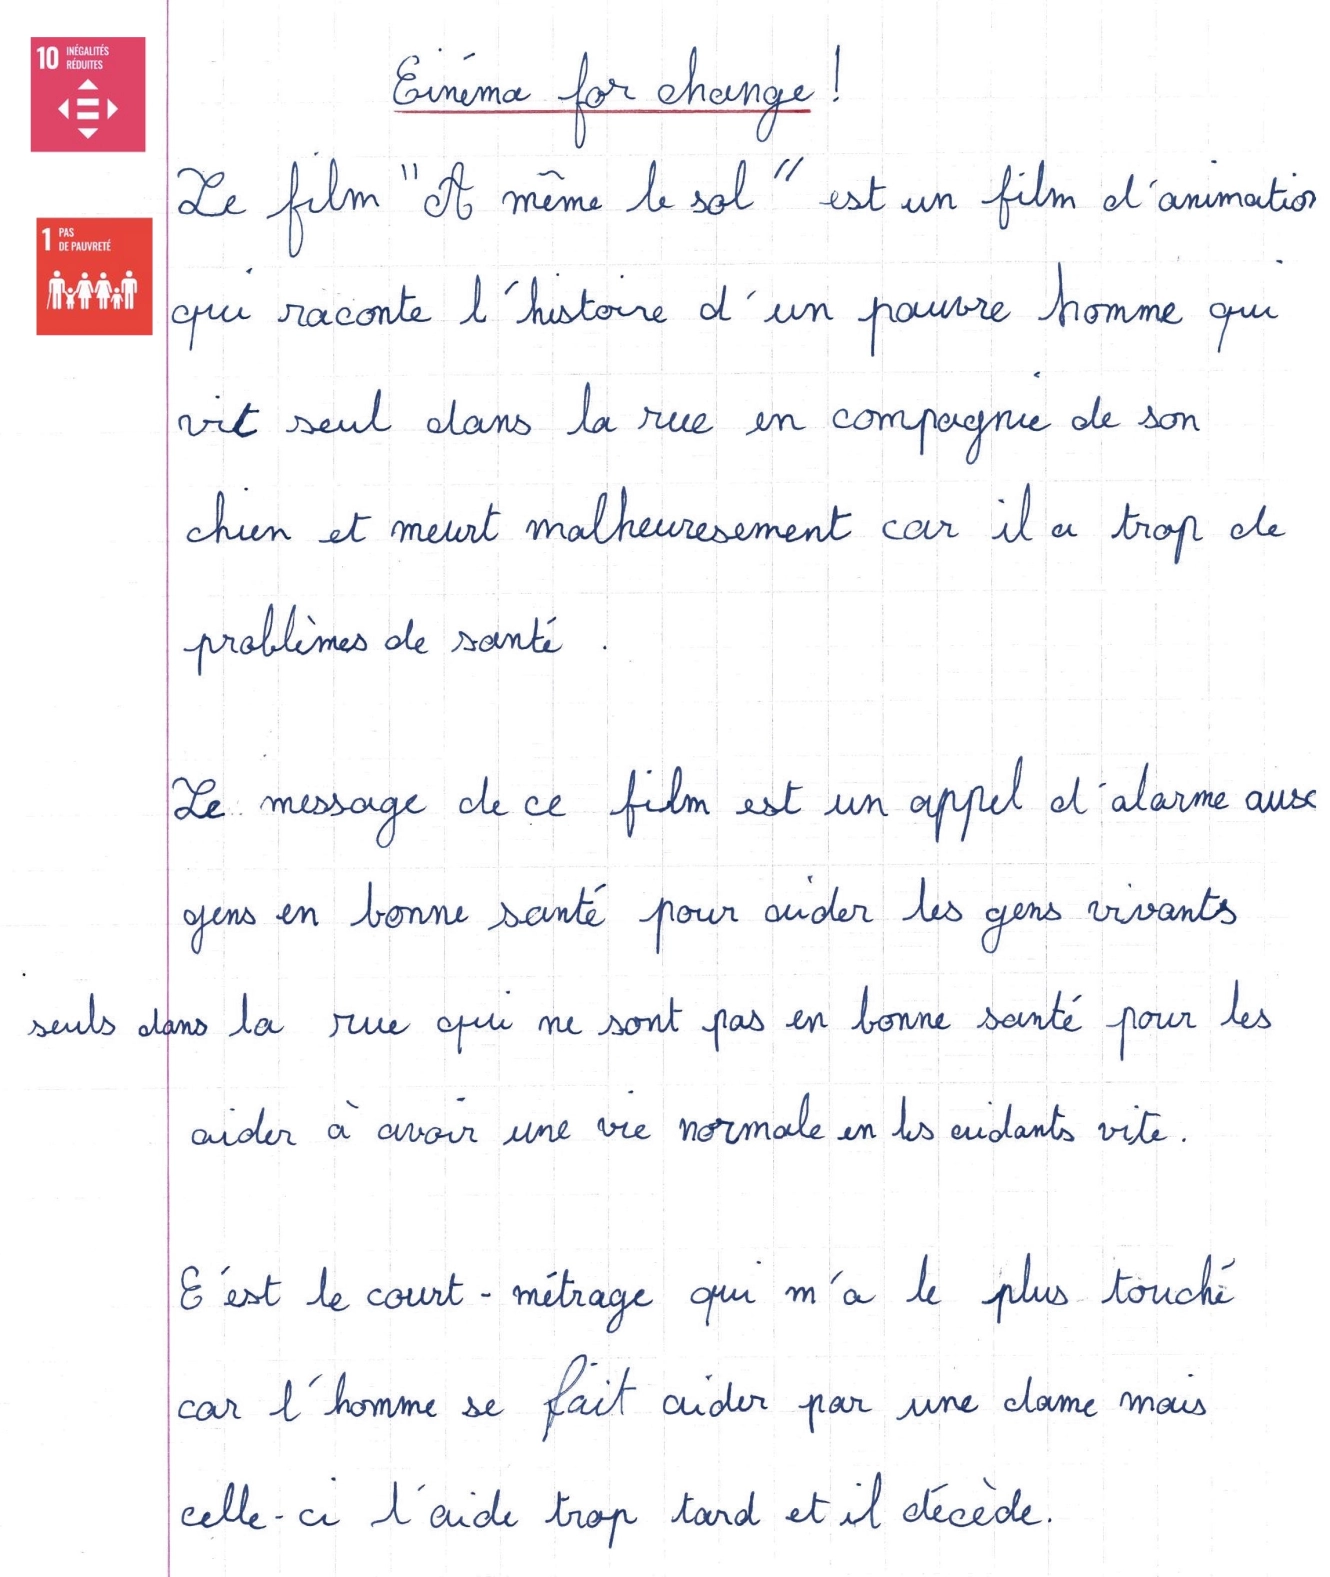 10 INÉGALITÉS
RÉDUITES
Cinéma for change !
Le film "A même le sol" est un film d'animation
1 PAS
DE PAUVRETÉ
qui raconte l'histoire d'un pauvre homme qui
vit seul dans la rue en compagnie de son
chien et meurt malheuresement car il a trop de
problèmes de santé .
Le message de ce film est un appel d'alarme aux
gens en bonne santé pour aider les gens vivants
seuls dans la rue qui ne sont pas en bonne santé pour les
aider à avoir une vie normale en les aidants vite.
C'est le court-métrage qui m'a le plus touché
car l'homme se fait aider par une dame mais
celle-ci l'aide trop tard et il décède.